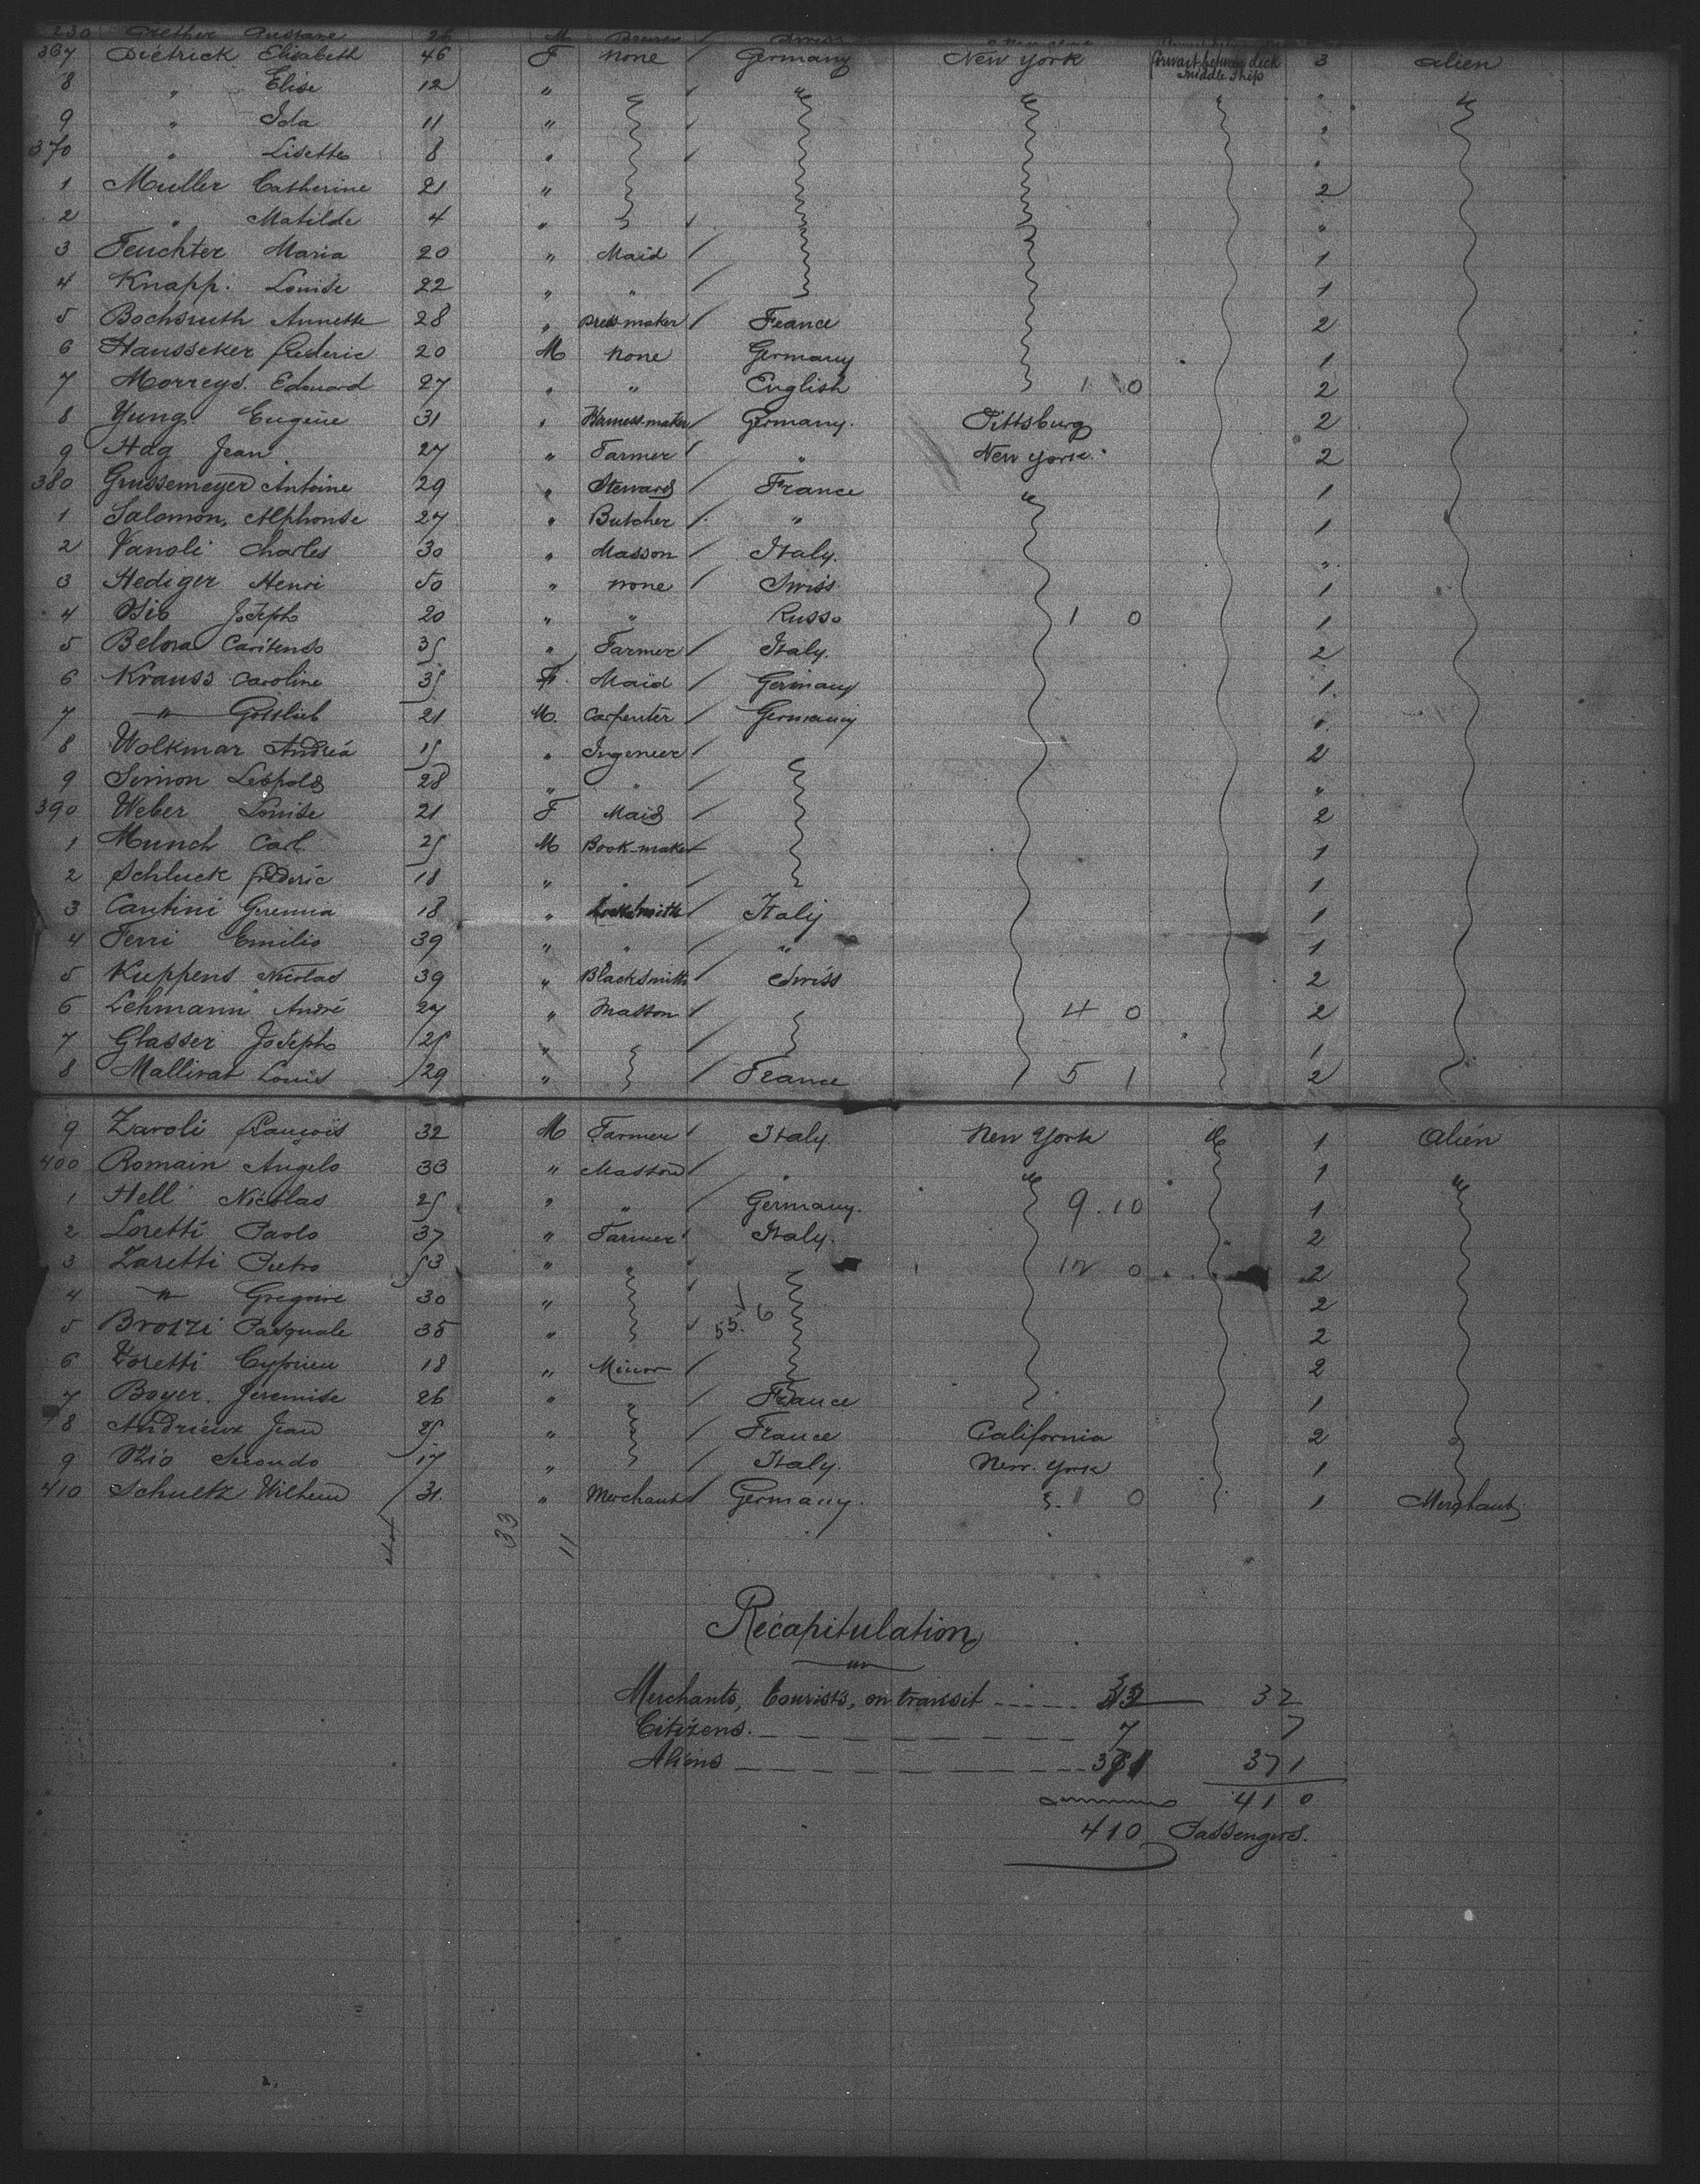 230 Gustave 26 M Swiss
367 Dietrick Elisabeth 46 F none / Germany New York forwart between deck middle ship 3 alien
8 " Elise 12 " "
9 " Ida 11 " "
370 " Lisette 8 " "
1 Muller Catherine 21 " 2
2 " Matilde 4 " "
3 Feuchter Maria 20 " Maid / 1
4 Knapp. Louise 22 " " / 1
5 Bochsruth Annette 28 " Dressmaker / France 2
6 Hausseker frederic 20 M none Germany 1
7 Morreys. Edouard 27 " " English 1 0 2
8 Yung Eugène 31 " Harness-maker / Germany. Pittsburg 2
9 Hag Jean 27 " Farmer / " New York. 2
380 Grussemeyer Antoine 29 " Steward / France " 1
1 Salomon, Alphonse 27 " Butcher / " 1
2 Vanoli Charles 30 " Masson / Italy. "
3 Hediger Henri 50 " none / Swiss 1
4 Joseph 20 " " Russo 1 0 1
5 Belora Caritendo 35 " Farmer / Italy. 2
6 Krauss Caroline 35 F. Maid / Germany 1.
7 " Gottlieb 21 M. Carpenter / Germany "
8 Wolkmar Andréa 15 " Ingeneer / 2
9 Simon Leopold 28 " " / "
390 Weber Louise 21 F Maid / 2
1 Munch Carl 25 M Book-maker 1
2 Schluck fréderic 18 " " / 1
3 Cantini Geremia 18 " Locksmith / Italy 1
4 Ferri Emilio 39 " " / " 1
5 Kuppens Nicolas 39 " Blacksmith / Swiss 2
6 Lehmann André 27 " Masson / 4 0 2
7 Glasser Joseph 25 " / 1
8 Mallivat Louis 29 " / France 5 1 2
9 Zaroli françois 32 M Farmer / Italy. New York " 1 Alien
400 Romain Angelo 33 " Masson / " " 1 "
1 Hell Nicolas 25 " " / Germany. 9.10 1
2 Loretti Paolo 37 " Farmer / Italy. 2
3 Zaretti Pietro 53 " " 12 0 2
4 " Gregoire 30 " / 2
5 Brozzi Pasquale 35 " / 55. 6 2
6 Zoretti Cyprien 18 " Minor / 2
7 Boyer. Jeremise 26 " " / France 1
8 Andrieux Jean 25 " / France California 2
9 Rio Secondo 17 " / Italy. New. York 1
410 Schultz Wilhem 31. " Merchant / Germany. 1 0 1 Merchant
33 11
Récapitulation
Merchants, tourists, on transit ----- 32 32
Citizens. ------ 7 7
Aliens ------ 371 371
410
410 Passengers.